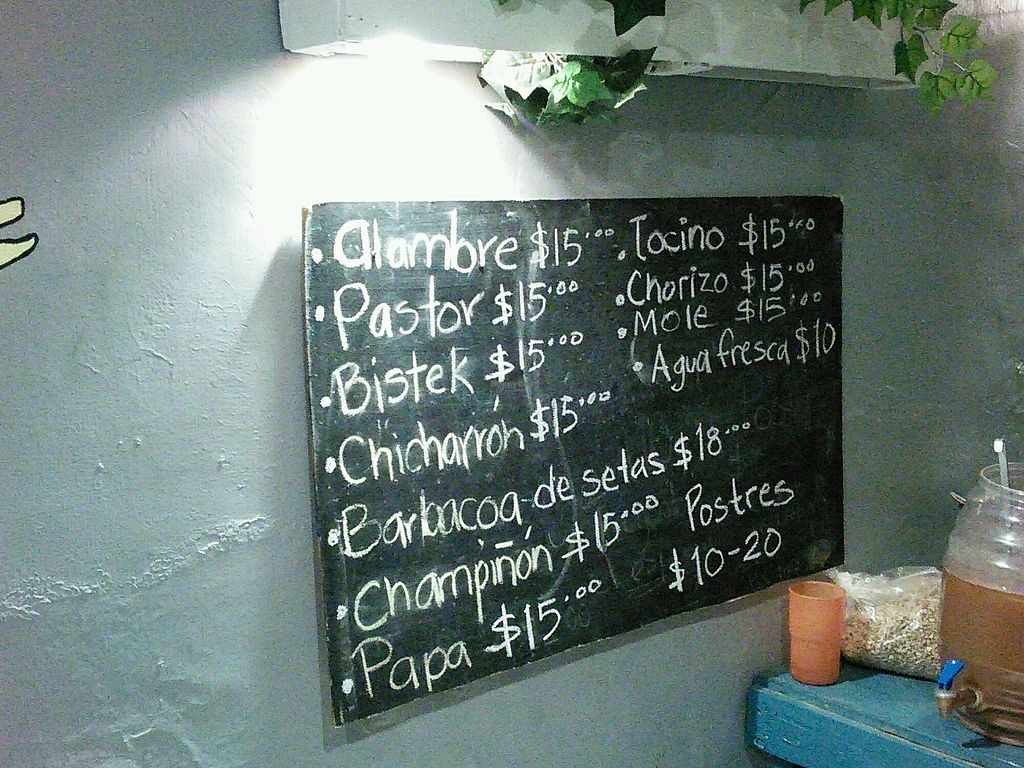 • Alambre $15.00
• Pastor $15.00
• Bistek $15.00
• Chicharrón $15.00
• Barbacoa de setas $18.00
• Champiñón $15.00
• Papa $15.00
• Tocino $15.00
• Chorizo $15.00
• Mole $15.00
• Agua fresca $10
Postres
$10-20